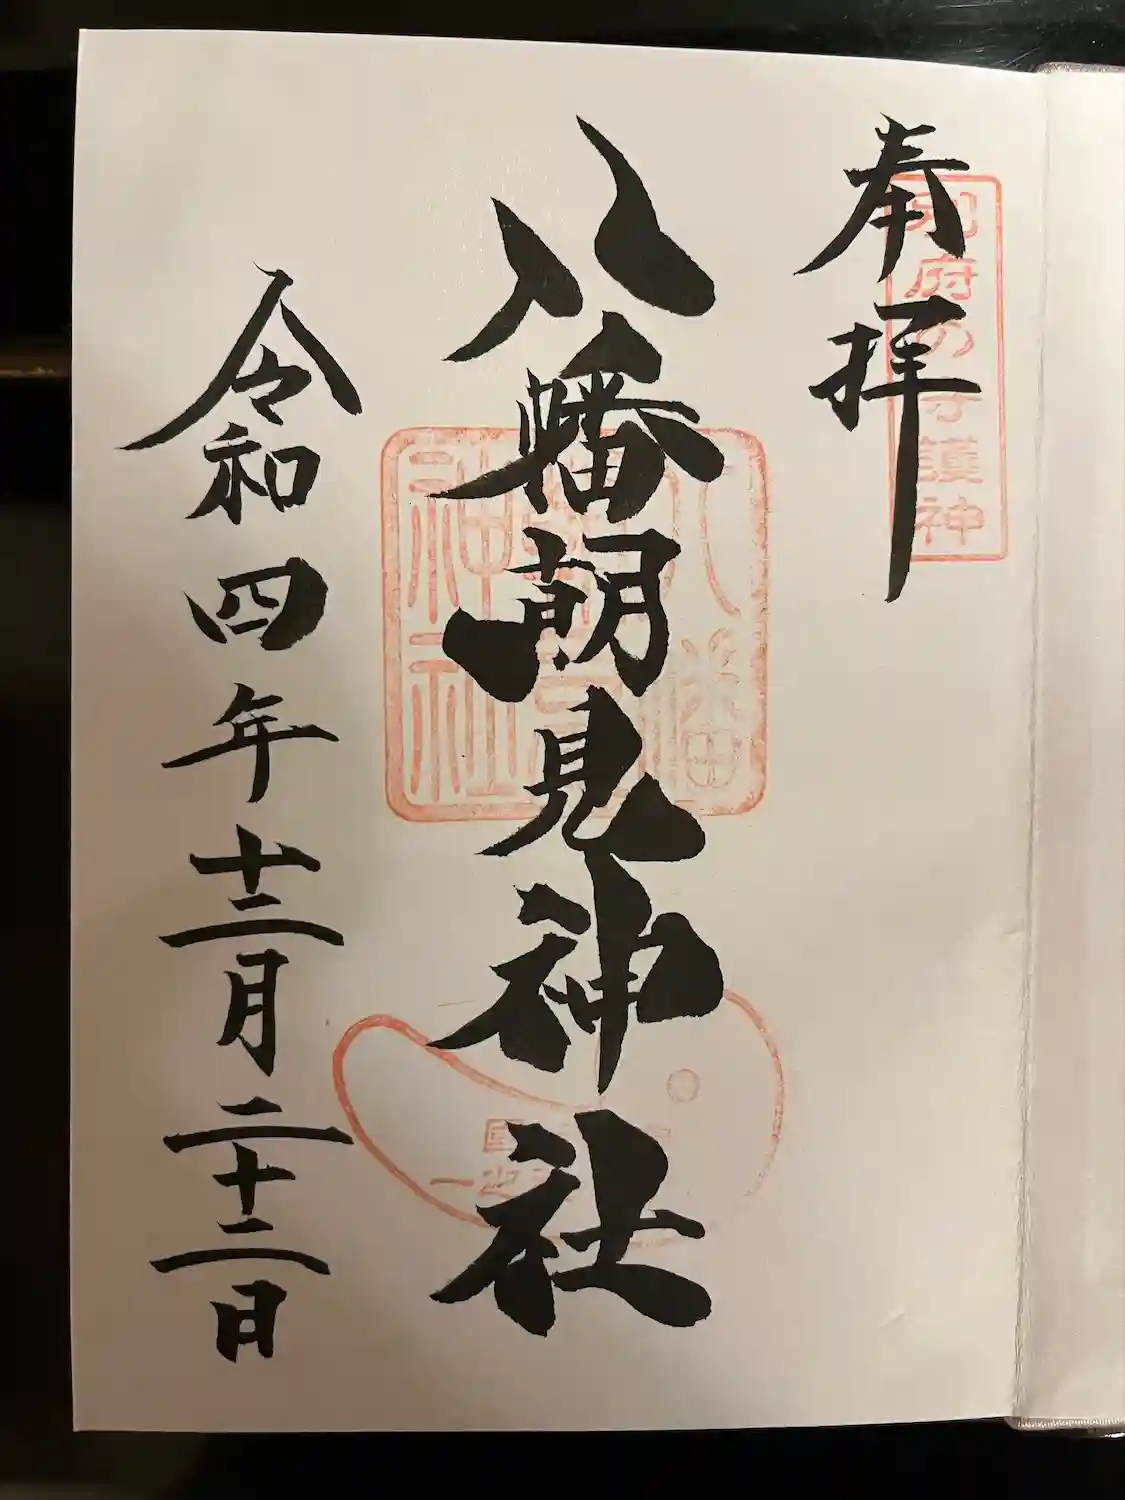 奉拝
別府の守護神
八幡朝見神社
八幡朝見神社
令和四年十二月二十二日